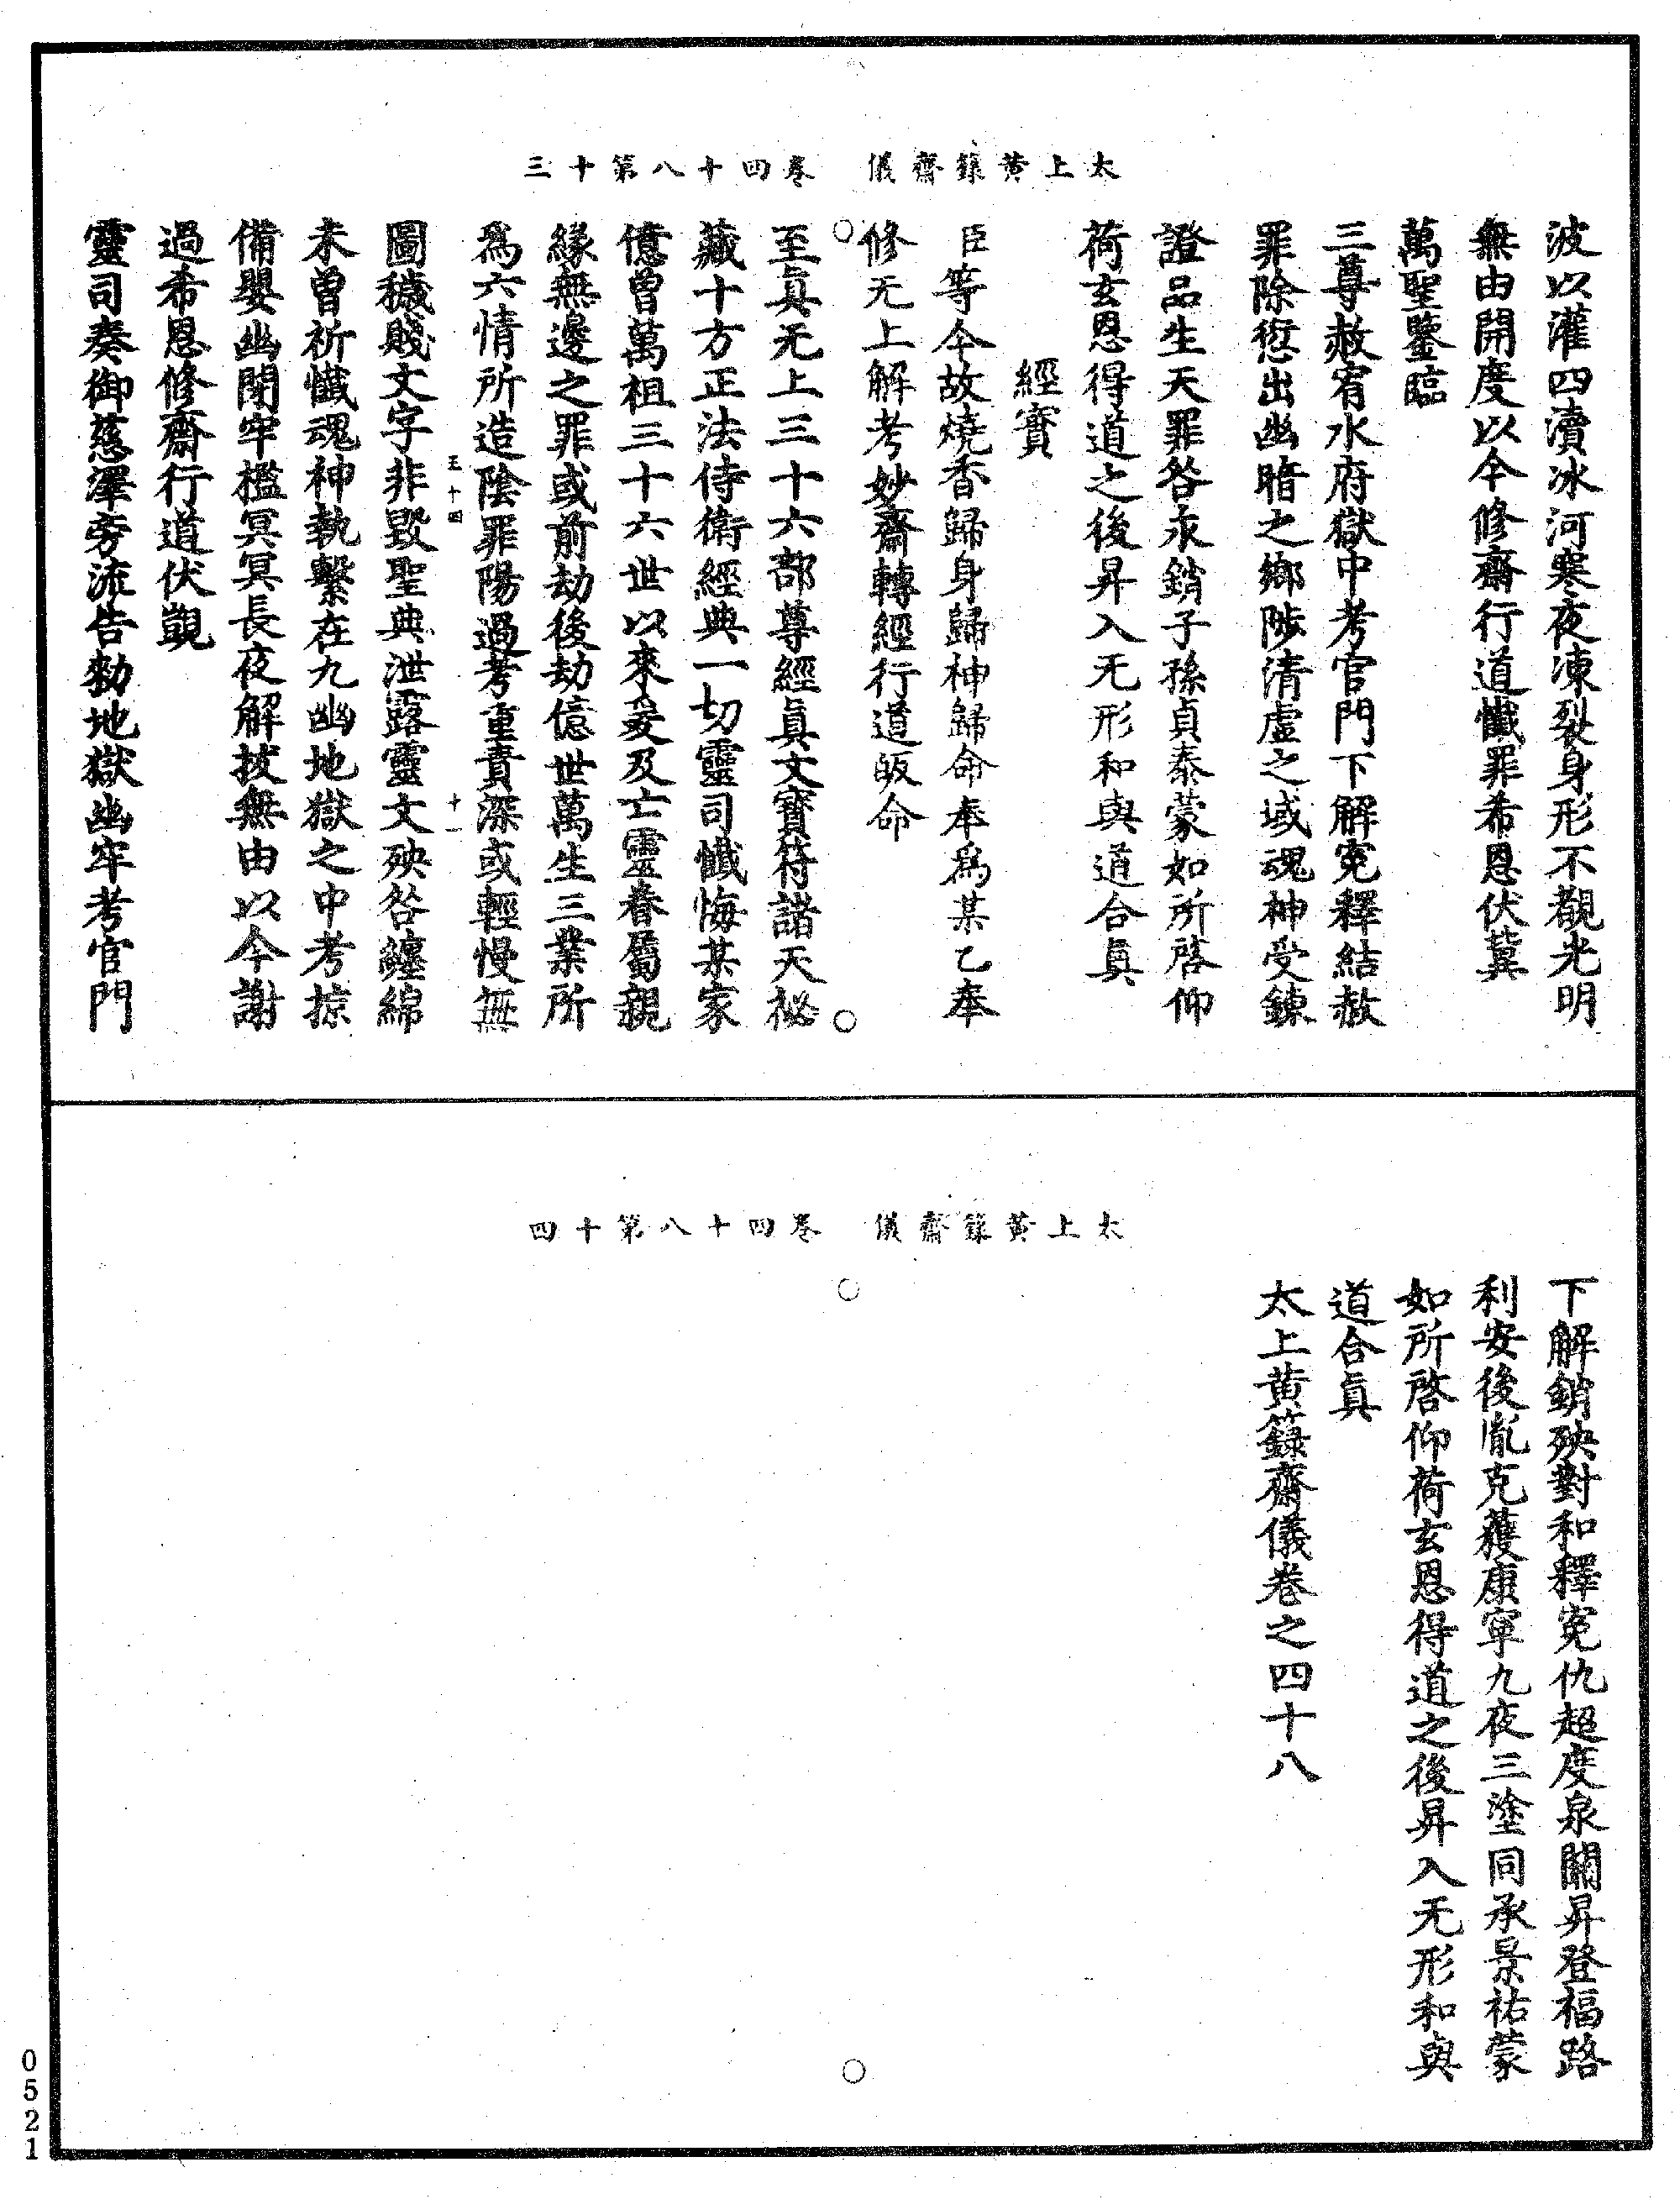 太上黃籙齋儀　卷四十八第十三
波以灌四瀆冰河寒夜凍裂身形不覩光明
無由開度以今修齋行道懺罪希恩伏冀
萬聖鑒臨
三尊赦宥水府獄中考官門下解寃釋結赦
罪除愆出幽暗之鄉陟清虛之域魂神受鍊
證品生天罪咎永銷子孫貞泰蒙如所啓仰
荷玄恩得道之後昇入无形和與道合眞
經寶
臣等今故燒香歸身歸神歸命奉爲某乙奉
修无上解考妙齋轉經行道皈命
至眞无上三十六部尊經眞文寶符諸天祕
藏十方正法侍衛經典一切靈司懺悔某家
億曾萬祖三十六世以來爰及亡靈眷屬親
緣無邊之罪或前劫後劫億世萬生三業所
爲六情所造陰罪陽過考重責深或輕慢無
五十四　十一
圖穢賤文字非毀聖典泄露靈文殃咎纏綿
未曾祈懺魂神執繫在九幽地獄之中考掠
備嬰幽閉牢檻冥冥長夜解拔無由以今謝
過希恩修齋行道伏覬
靈司奏御慈澤旁流告勑地獄幽牢考官門
太上黃籙齋儀　卷四十八第十四
下解銷殃對和釋寃仇超度泉關昇登福路
利安後胤克獲康寧九夜三塗同承景祐蒙
如所啓仰荷玄恩得道之後昇入无形和與
道合眞
太上黃籙齋儀卷之四十八
0521